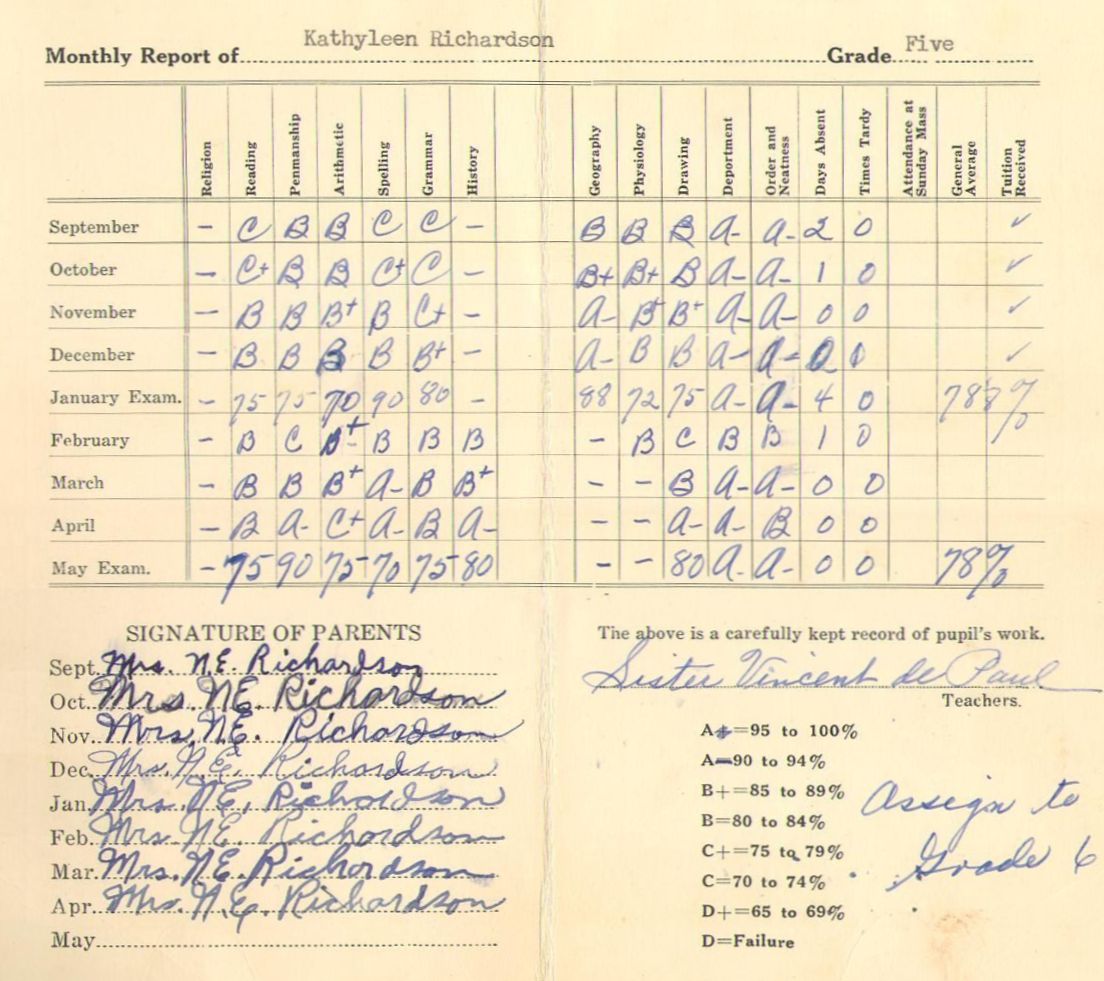 Monthly Report of Kathyleen Richardson Grade Five
Religion Reading Penmanship Arithmetic Spelling Grammar History Geography Physiology Drawing Deportment Order and Neatness Days Absent Times Tardy Attendance at Sunday Mass General Average Tuition Received
September - C B B C C - B B B A- A- 2 0 ✓
October - C+ B B C+ C - B+ B+ B A- A- 1 0 ✓
November - B B B+ B C+ - A- B+ B+ A- A- 0 0 ✓
December - B B B B B+ - A- B B A- A- 0 0 ✓
January Exam. - 75 75 70 90 80 - 88 72 75 A- A- 4 0 78%
February - B C B+ B B B - B C B B 1 0
March - B B B+ A- B B+ - - B A- A- 0 0
April - B A- C+ A- B A- - - A- A- B 0 0
May Exam. - 75 90 75 70 75 80 - - 80 A- A- 0 0 78%
SIGNATURE OF PARENTS
Sept. Mrs. N.E. Richardson
Oct. Mrs. N.E. Richardson
Nov. Mrs. N.E. Richardson
Dec. Mrs. N.E. Richardson
Jan. Mrs. N.E. Richardson
Feb. Mrs. N.E. Richardson
Mar. Mrs. N.E. Richardson
Apr. Mrs. N.E. Richardson
May
The above is a carefully kept record of pupil's work.
Sister Vincent de Paul
Teachers.
A+=95 to 100%
A-90 to 94%
B+=85 to 89%
B=80 to 84%
C+=75 to 79%
C=70 to 74%
D+=65 to 69%
D=Failure
Assign to
Grade 6